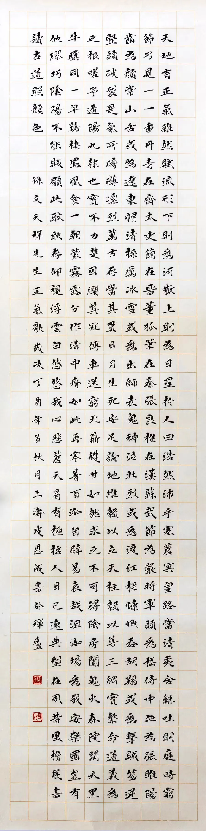 天地有正氣雜然賦流形下則為河嶽上則為日星於人曰浩然沛乎塞蒼冥皇路當清夷含和吐明庭時窮
節乃見一一垂丹青在齊太史簡在晉董狐筆在秦張良椎在漢蘇武節為嚴將軍頭為嵇侍中血為張睢陽
齒為顏常山舌或為遼東帽清操厲冰雪或為出師表鬼神泣壯烈或為渡江楫慷慨吞胡羯或為擊賊笏逆
豎頭破裂是氣所磅礴凜烈萬古存當其貫日月生死安足論地維賴以立天柱賴以尊三綱實繫命道義為
之根嗟予遘陽九隸也實不力楚囚纓其冠傳車送窮北鼎鑊甘如飴求之不可得陰房闃鬼火春院閟天黑
牛驥同一皁雞棲鳳凰食一朝蒙霧露分作溝中瘠如此再寒暑百沴自辟易嗟哉沮洳場為我安樂國豈有
他繆巧陰陽不能賊顧此耿耿在仰視浮雲白悠悠我心悲蒼天曷有極哲人日已遠典型在夙昔風簷展書
讀古道照顏色 錄文天祥先生正氣歌歲次丁酉年